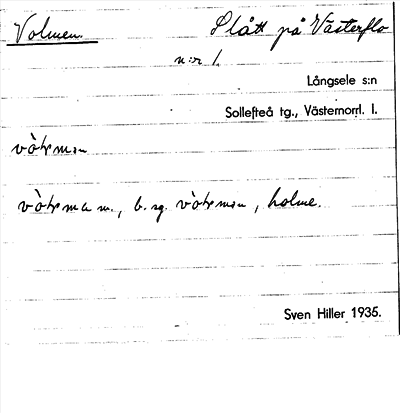 Volmen. Slått på Västerflo
n:r 1.
Långsele s:n
Sollefteå tg., Västernorrl. l.
m., b. sg. , holme.
Sven Hiller 1935.